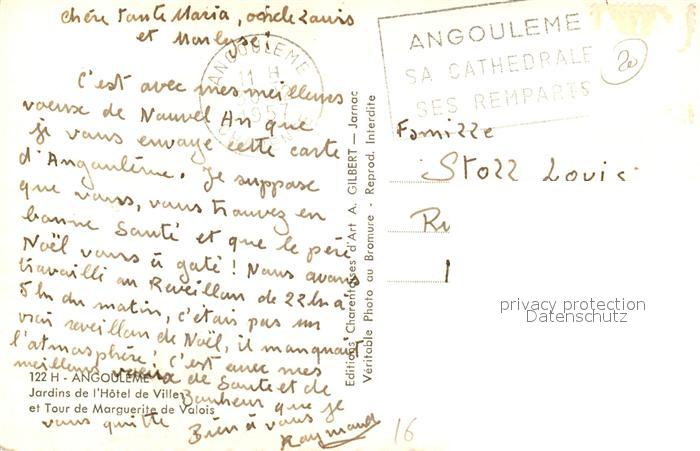 chère tante Maria, oncle Louis
et Marlyse!
C'est avec mes meilleurs
voeux de Nouvel An que
je vous envoye cette carte
d'Angoulême. Je suppose
que vous, vous trouvez en
bonne Santé et que le père
Noël vous à gaté! Nous avons
travailli au Reveillon de 22h à
5h du matin, c'étais pas un
vrai reveillon de Noël, il manquait
l'atmosphère! C'est avec mes
meilleurs voeux de Sante et de
Bonheur que je
vous quitte
Bien à vous
Raymond
122 H - ANGOULÊME
Jardins de l'Hôtel de Ville
et Tour de Marguerite de Valois
ANGOULEME
11 H
1957
Editions Charentaises d'Art A. GILBERT — Jarnac
Véritable Photo au Bromure - Reprod. Interdite
ANGOULEME
SA CATHEDRALE
SES REMPARTS
20
Famille
Stoll Louis
Ru
1
privacy protection
Datenschutz
16